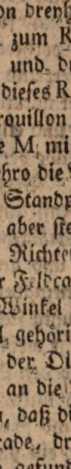 on dreyß
zum K
und d
dieses R
rouillon
e M, mi
hro die
Standp
aber ste
Richte
r Feldca
Winkel
l, gehöri
der Di
an die
, daß di
rade, dr